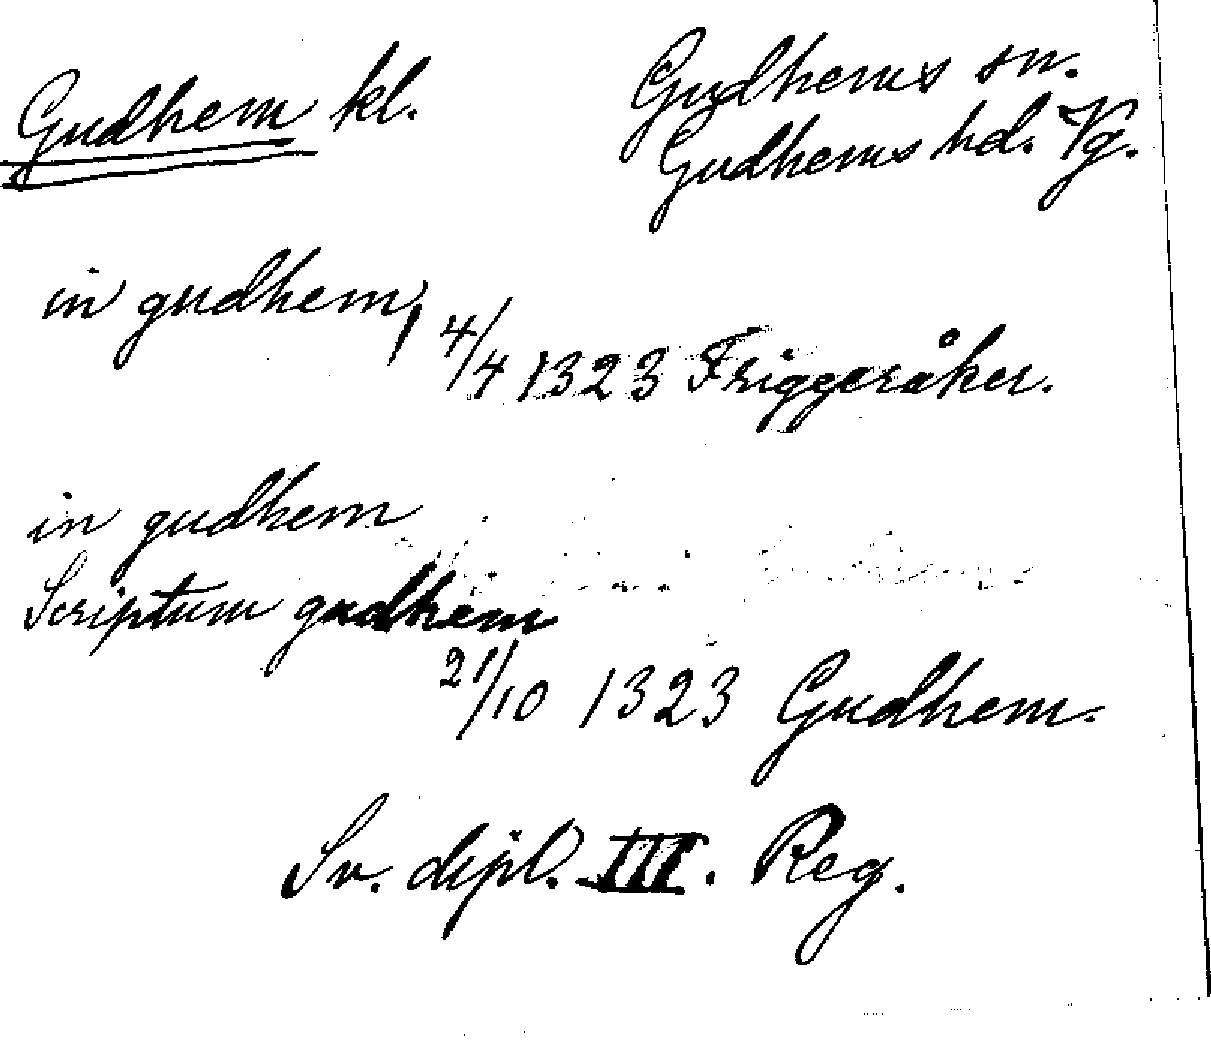 Gudhem kl.
Gudhems sn.
Gudhems hd. Vg.
in gudhem,
4/4 1323 Friggeråker.
in gudhem
Scriptum gudhem
21/10 1323 Gudhem.
Sv. dipl. III. Reg.